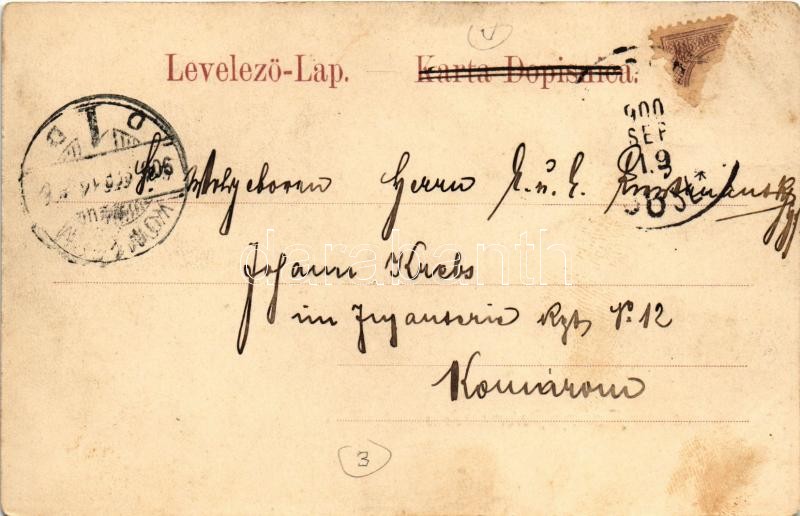 Levelező-Lap. Karta Dopisnica.
900
SEP
19
Sr. Wolgeboren Herrn K. u. K.
Johann Krebs
im Infanterie Rgt, No. 12
Komárom
darabanth
3